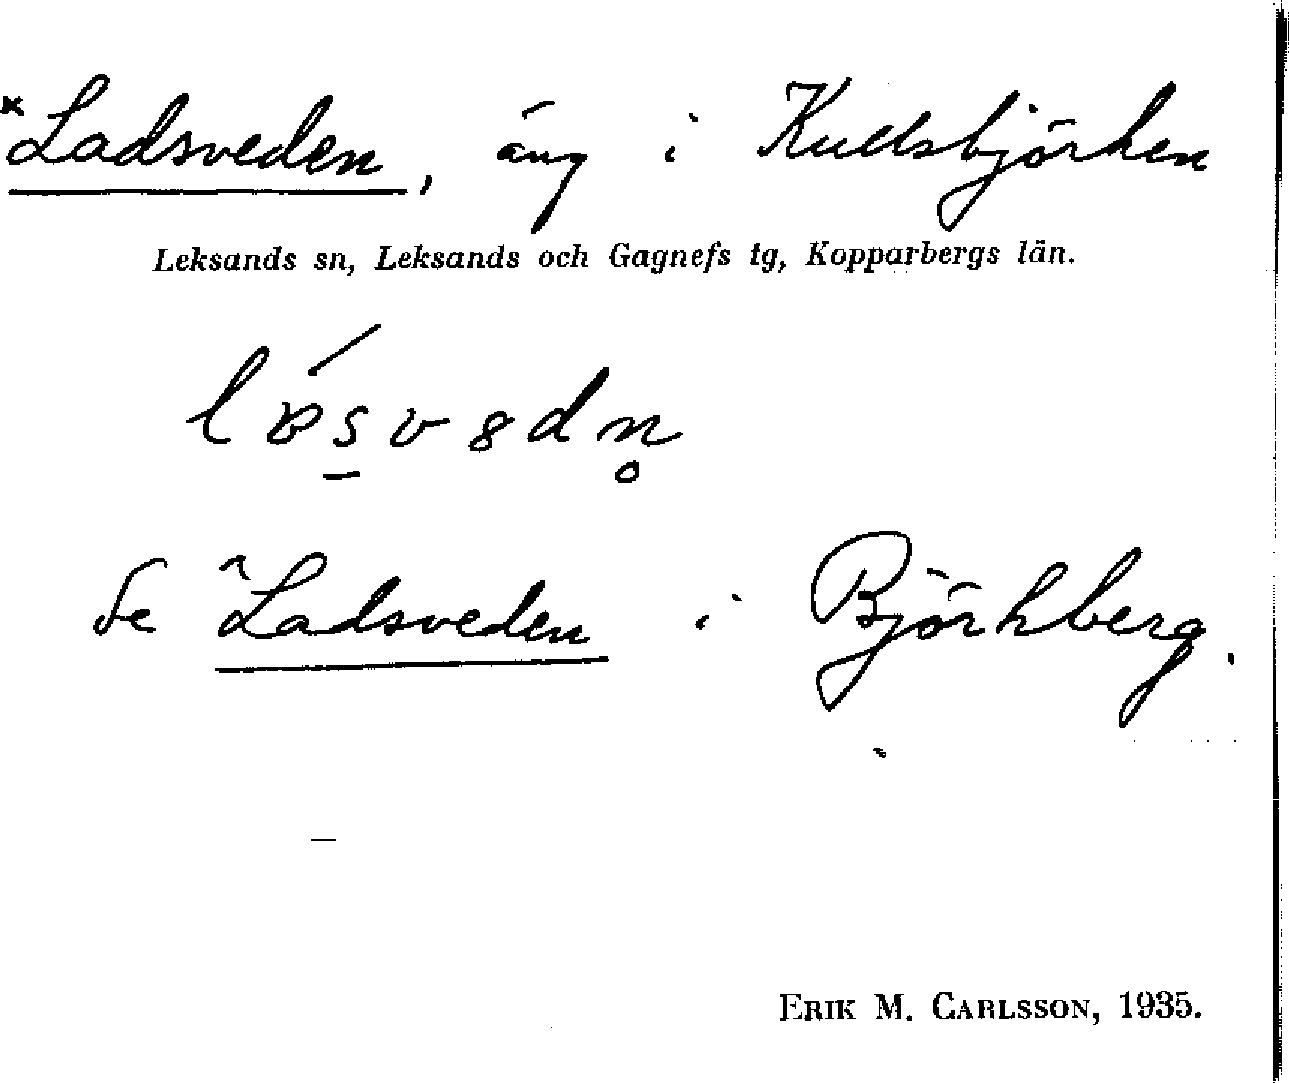 *Ladsveden, äng i Kullsbjörken
Leksands sn, Leksands och Gagnefs tg, Kopparbergs län.
Se *Ladsveden i Björkberg.
ERIK M. CARLSSON, 1935.